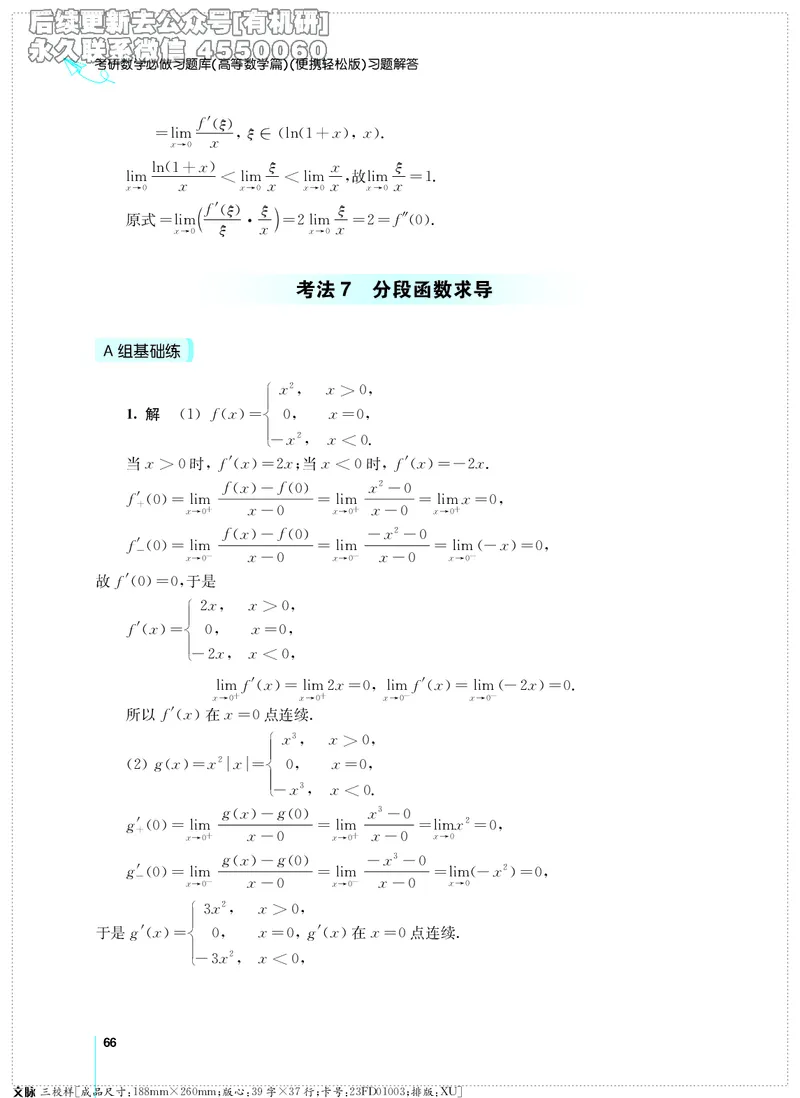 后续更新去公众号[有机研]
永久联系微信 4550060
考研数学必做习题库(高等数学篇)(便携轻松版)习题解答
=lim_{x→0} f′(ξ)/x, ξ∈(ln(1+x), x).
lim_{x→0} ln(1+x)/x < lim_{x→0} ξ/x < lim_{x→0} x/x,故lim_{x→0} ξ/x=1.
原式=lim_{x→0}(f′(ξ)/ξ · ξ/x)=2 lim_{x→0} ξ/x=2=f″(0).
考法7 分段函数求导
A组基础练
1. 解 (1) f(x)={x², x>0,
0, x=0,
-x², x<0.
当x>0时, f′(x)=2x;当x<0时, f′(x)=-2x.
f′₊(0)=lim_{x→0⁺} (f(x)-f(0))/(x-0)=lim_{x→0⁺} (x²-0)/(x-0)=lim_{x→0⁺} x=0,
f′₋(0)=lim_{x→0⁻} (f(x)-f(0))/(x-0)=lim_{x→0⁻} (-x²-0)/(x-0)=lim_{x→0⁻}(-x)=0,
故f′(0)=0,于是
f′(x)={2x, x>0,
0, x=0,
-2x, x<0,
lim_{x→0⁺} f′(x)=lim_{x→0⁺} 2x=0, lim_{x→0⁻} f′(x)=lim_{x→0⁻}(-2x)=0.
所以f′(x)在x=0点连续.
(2) g(x)=x²|x|={x³, x>0,
0, x=0,
-x³, x<0.
g′₊(0)=lim_{x→0⁺} (g(x)-g(0))/(x-0)=lim_{x→0⁺} (x³-0)/(x-0)=lim_{x→0} x²=0,
g′₋(0)=lim_{x→0⁻} (g(x)-g(0))/(x-0)=lim_{x→0⁻} (-x³-0)/(x-0)=lim_{x→0}(-x²)=0,
于是g′(x)={3x², x>0,
0, x=0, g′(x)在x=0点连续.
-3x², x<0,
66
文脉 三校样[成品尺寸:188mm×260mm;版心:39字×37行;卡号:23FD01003;排版:XU]